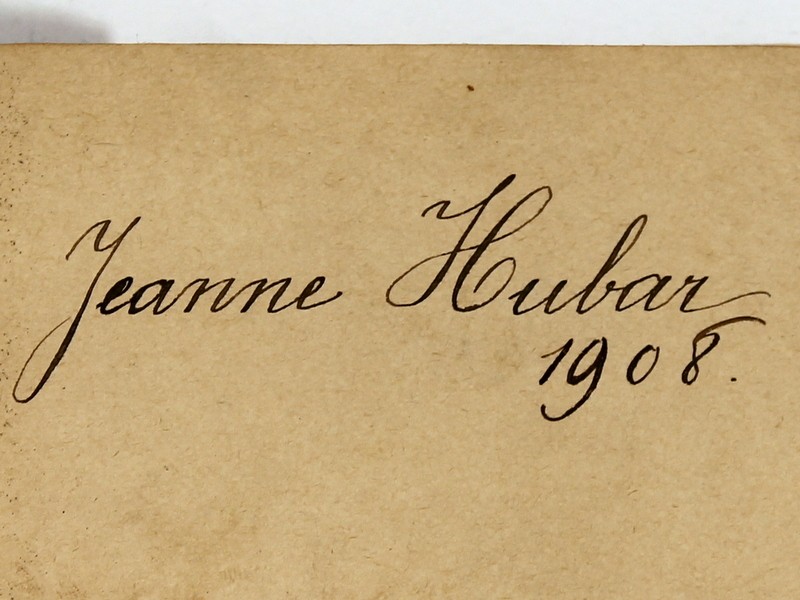 Jeanne Hubar
1908.